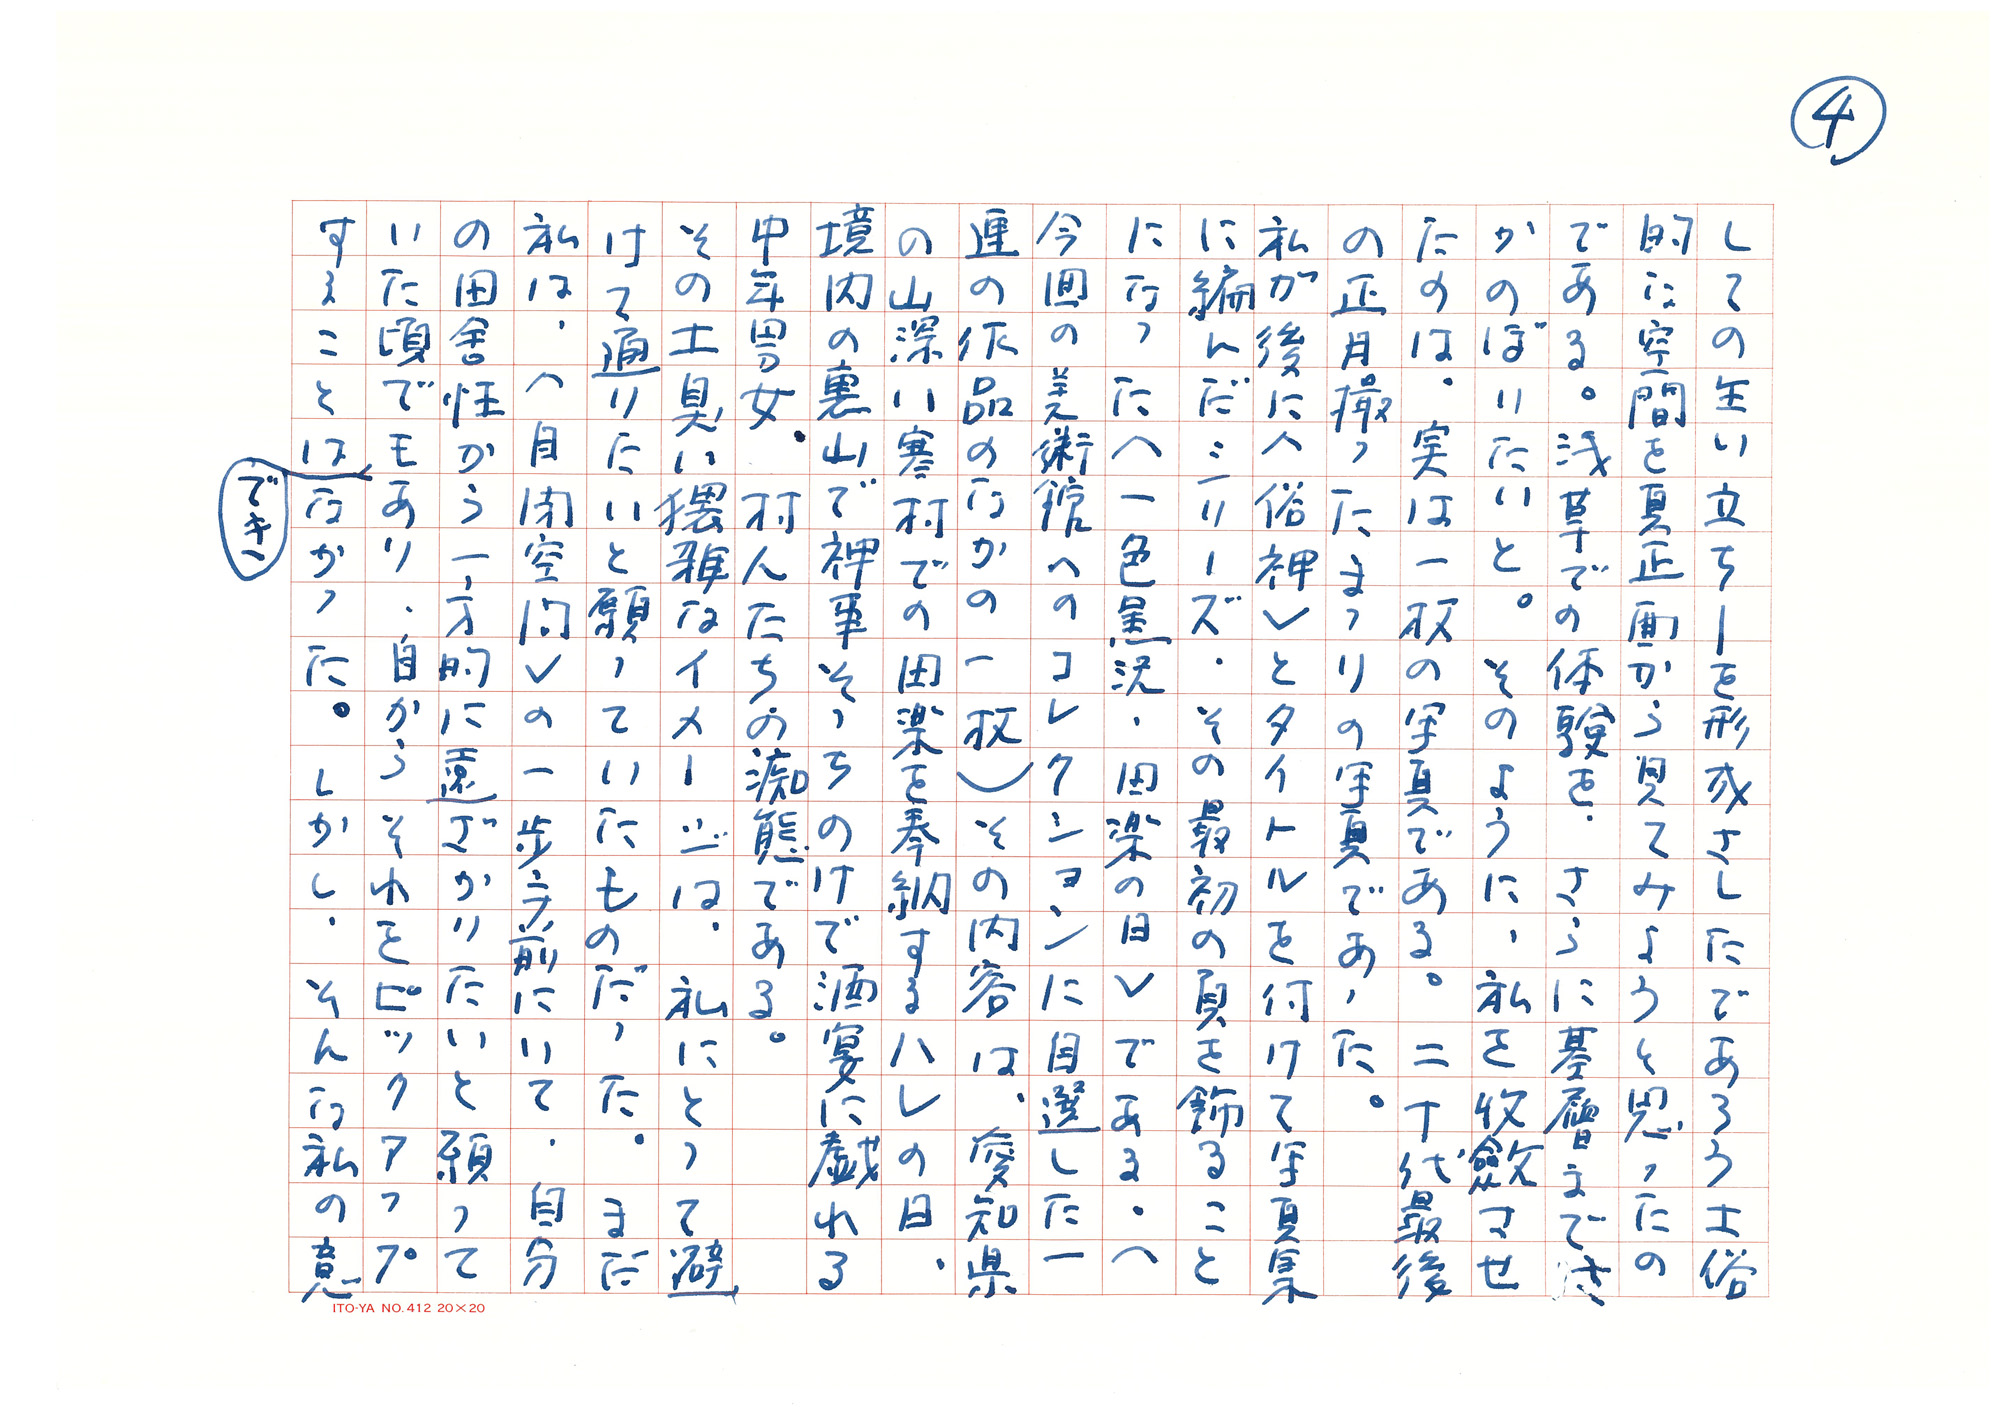 ④
しての生い立ち―を形成さしたであろう土俗
的な空間を真正面から見てみようと思ったの
である。浅草での体験を、さらに基層までさ
かのぼりたいと。そのように、私を収斂させ
たのは、実は一枚の写真である。二十代最後
の正月撮ったまつりの写真であった。
私が後に〈俗神〉とタイトルを付けて写真集
に編んだシリーズ、その最初の頁を飾ること
になった〈一色黒沢・田楽の日〉である。（
今回の美術館へのコレクションに自選した一
連の作品のなかの一枚）その内容は、愛知県
の山深い寒村での田楽を奉納するハレの日、
境内の裏山で神事そっちのけで酒宴に戯れる
中年男女、村人たちの痴態である。
その土臭い猥雑なイメージは、私にとって避
けて通りたいと願っていたものだった。まだ
私は、〈目閉空間〉の一歩手前にいて、自分
の田舎性から一方的に遠ざかりたいと願って
いた頃でモあり、自からそれをピックアップ
することはできなかった。しかし、そんな私の意
ITO-YA NO.412 20×20